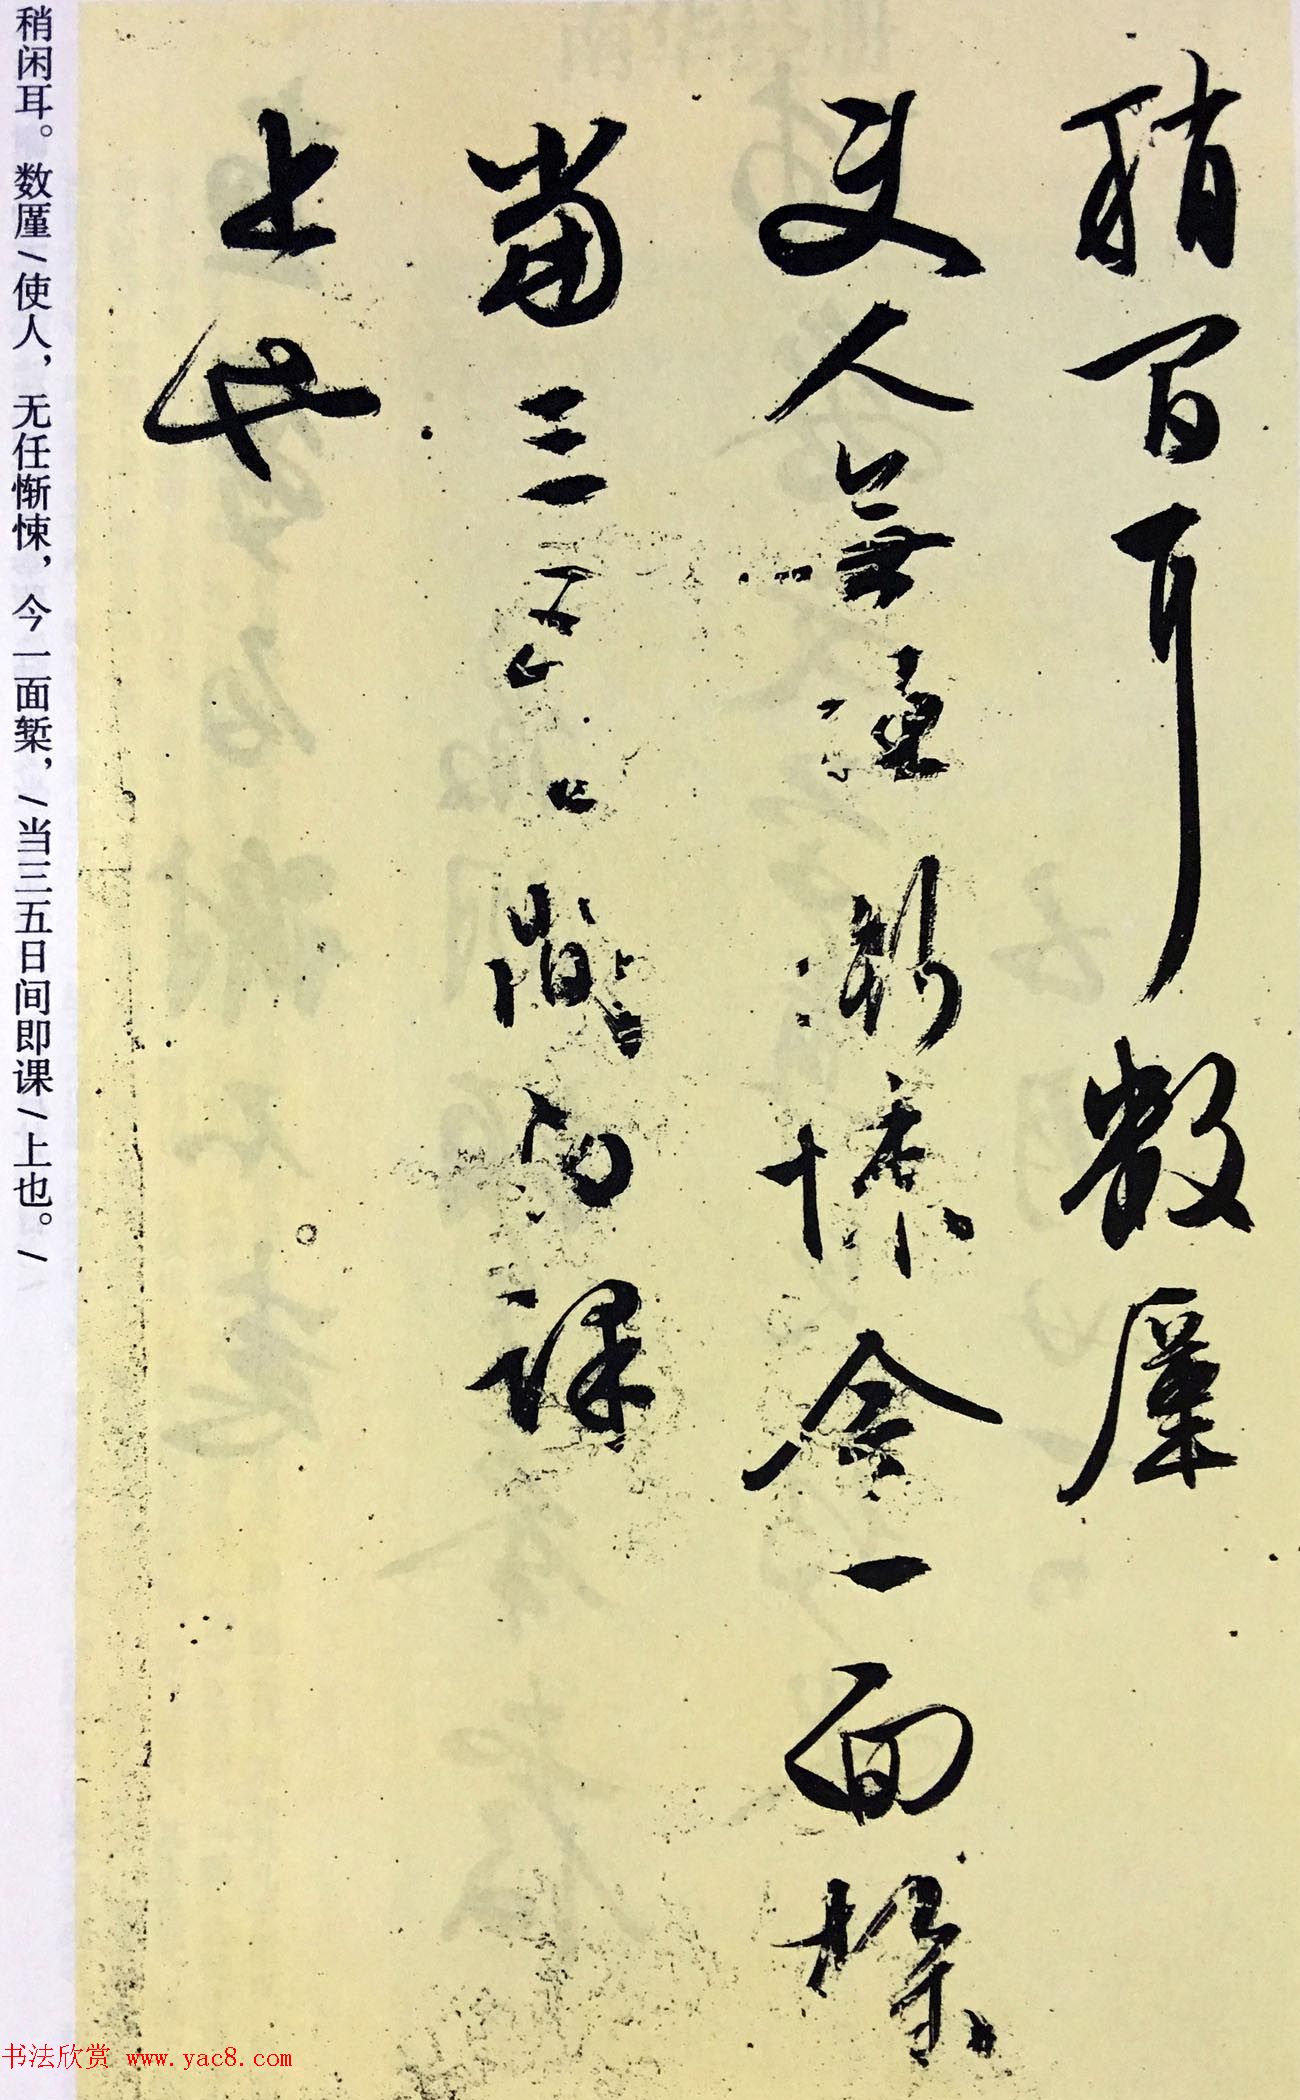 稍間耳數廑
使人無任慚悚今一面槧
當三五日間即課
上也
稍闲耳。数廑/使人，无任惭悚，今一面椠，/当三五日间即课/上也。/
书法欣赏 www.yac8.com